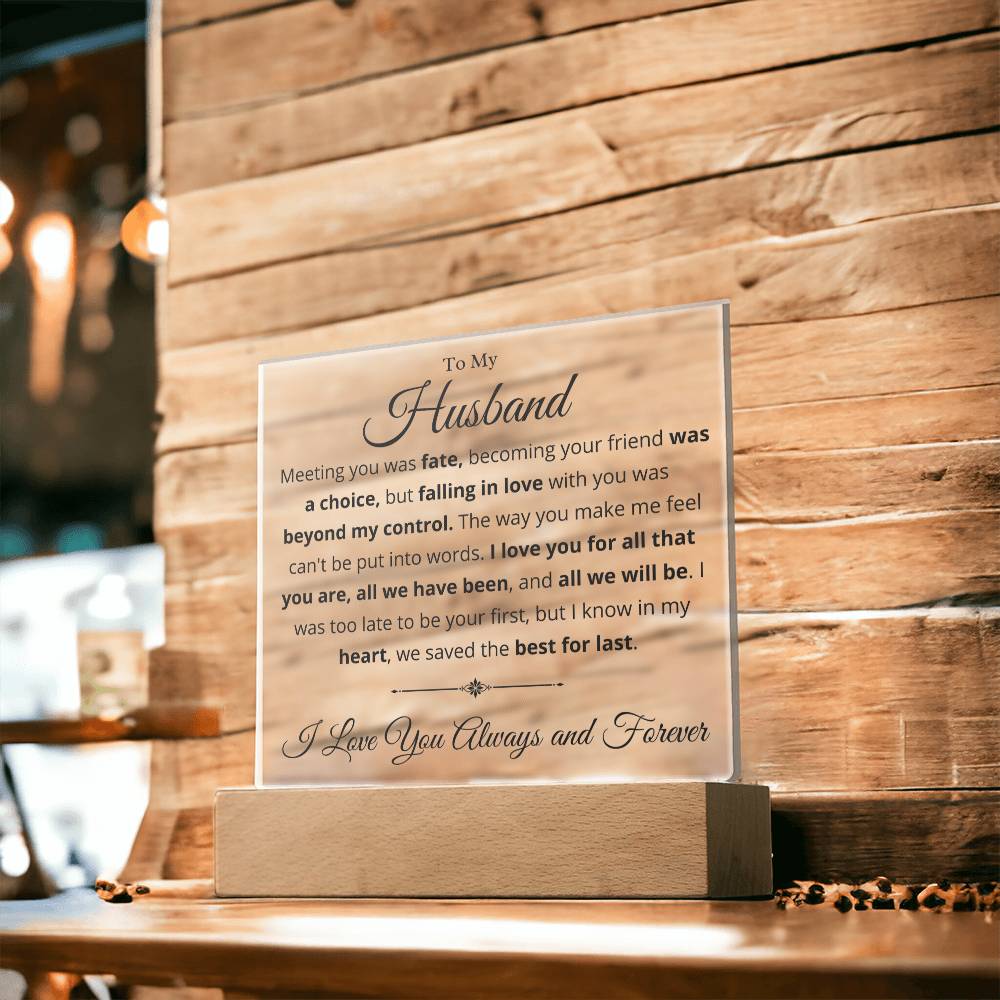 To My
Husband
Meeting you was fate, becoming your friend was
a choice, but falling in love with you was
beyond my control. The way you make me feel
can't be put into words. I love you for all that
you are, all we have been, and all we will be. I
was too late to be your first, but I know in my
heart, we saved the best for last.
I Love You Always and Forever